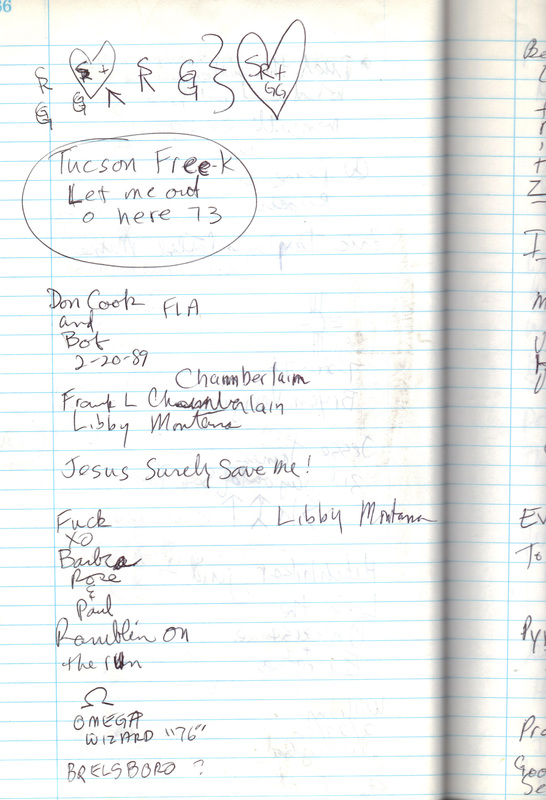 66
SR + SR G } SR +
GG
G G
Tucson Free-k
Let me out
o here 73
Don Cook FLA
and
Bot
2-20-89
Chamberlain
Frank L Chamberlain
Libby Montana
Jesus Surely Save me!
Fuck Libby Montana
XO
Barbra
Rose
&
Paul
Ramblin on
the run
Ω
OMEGA
WIZARD "76"
BRELSBORO ?